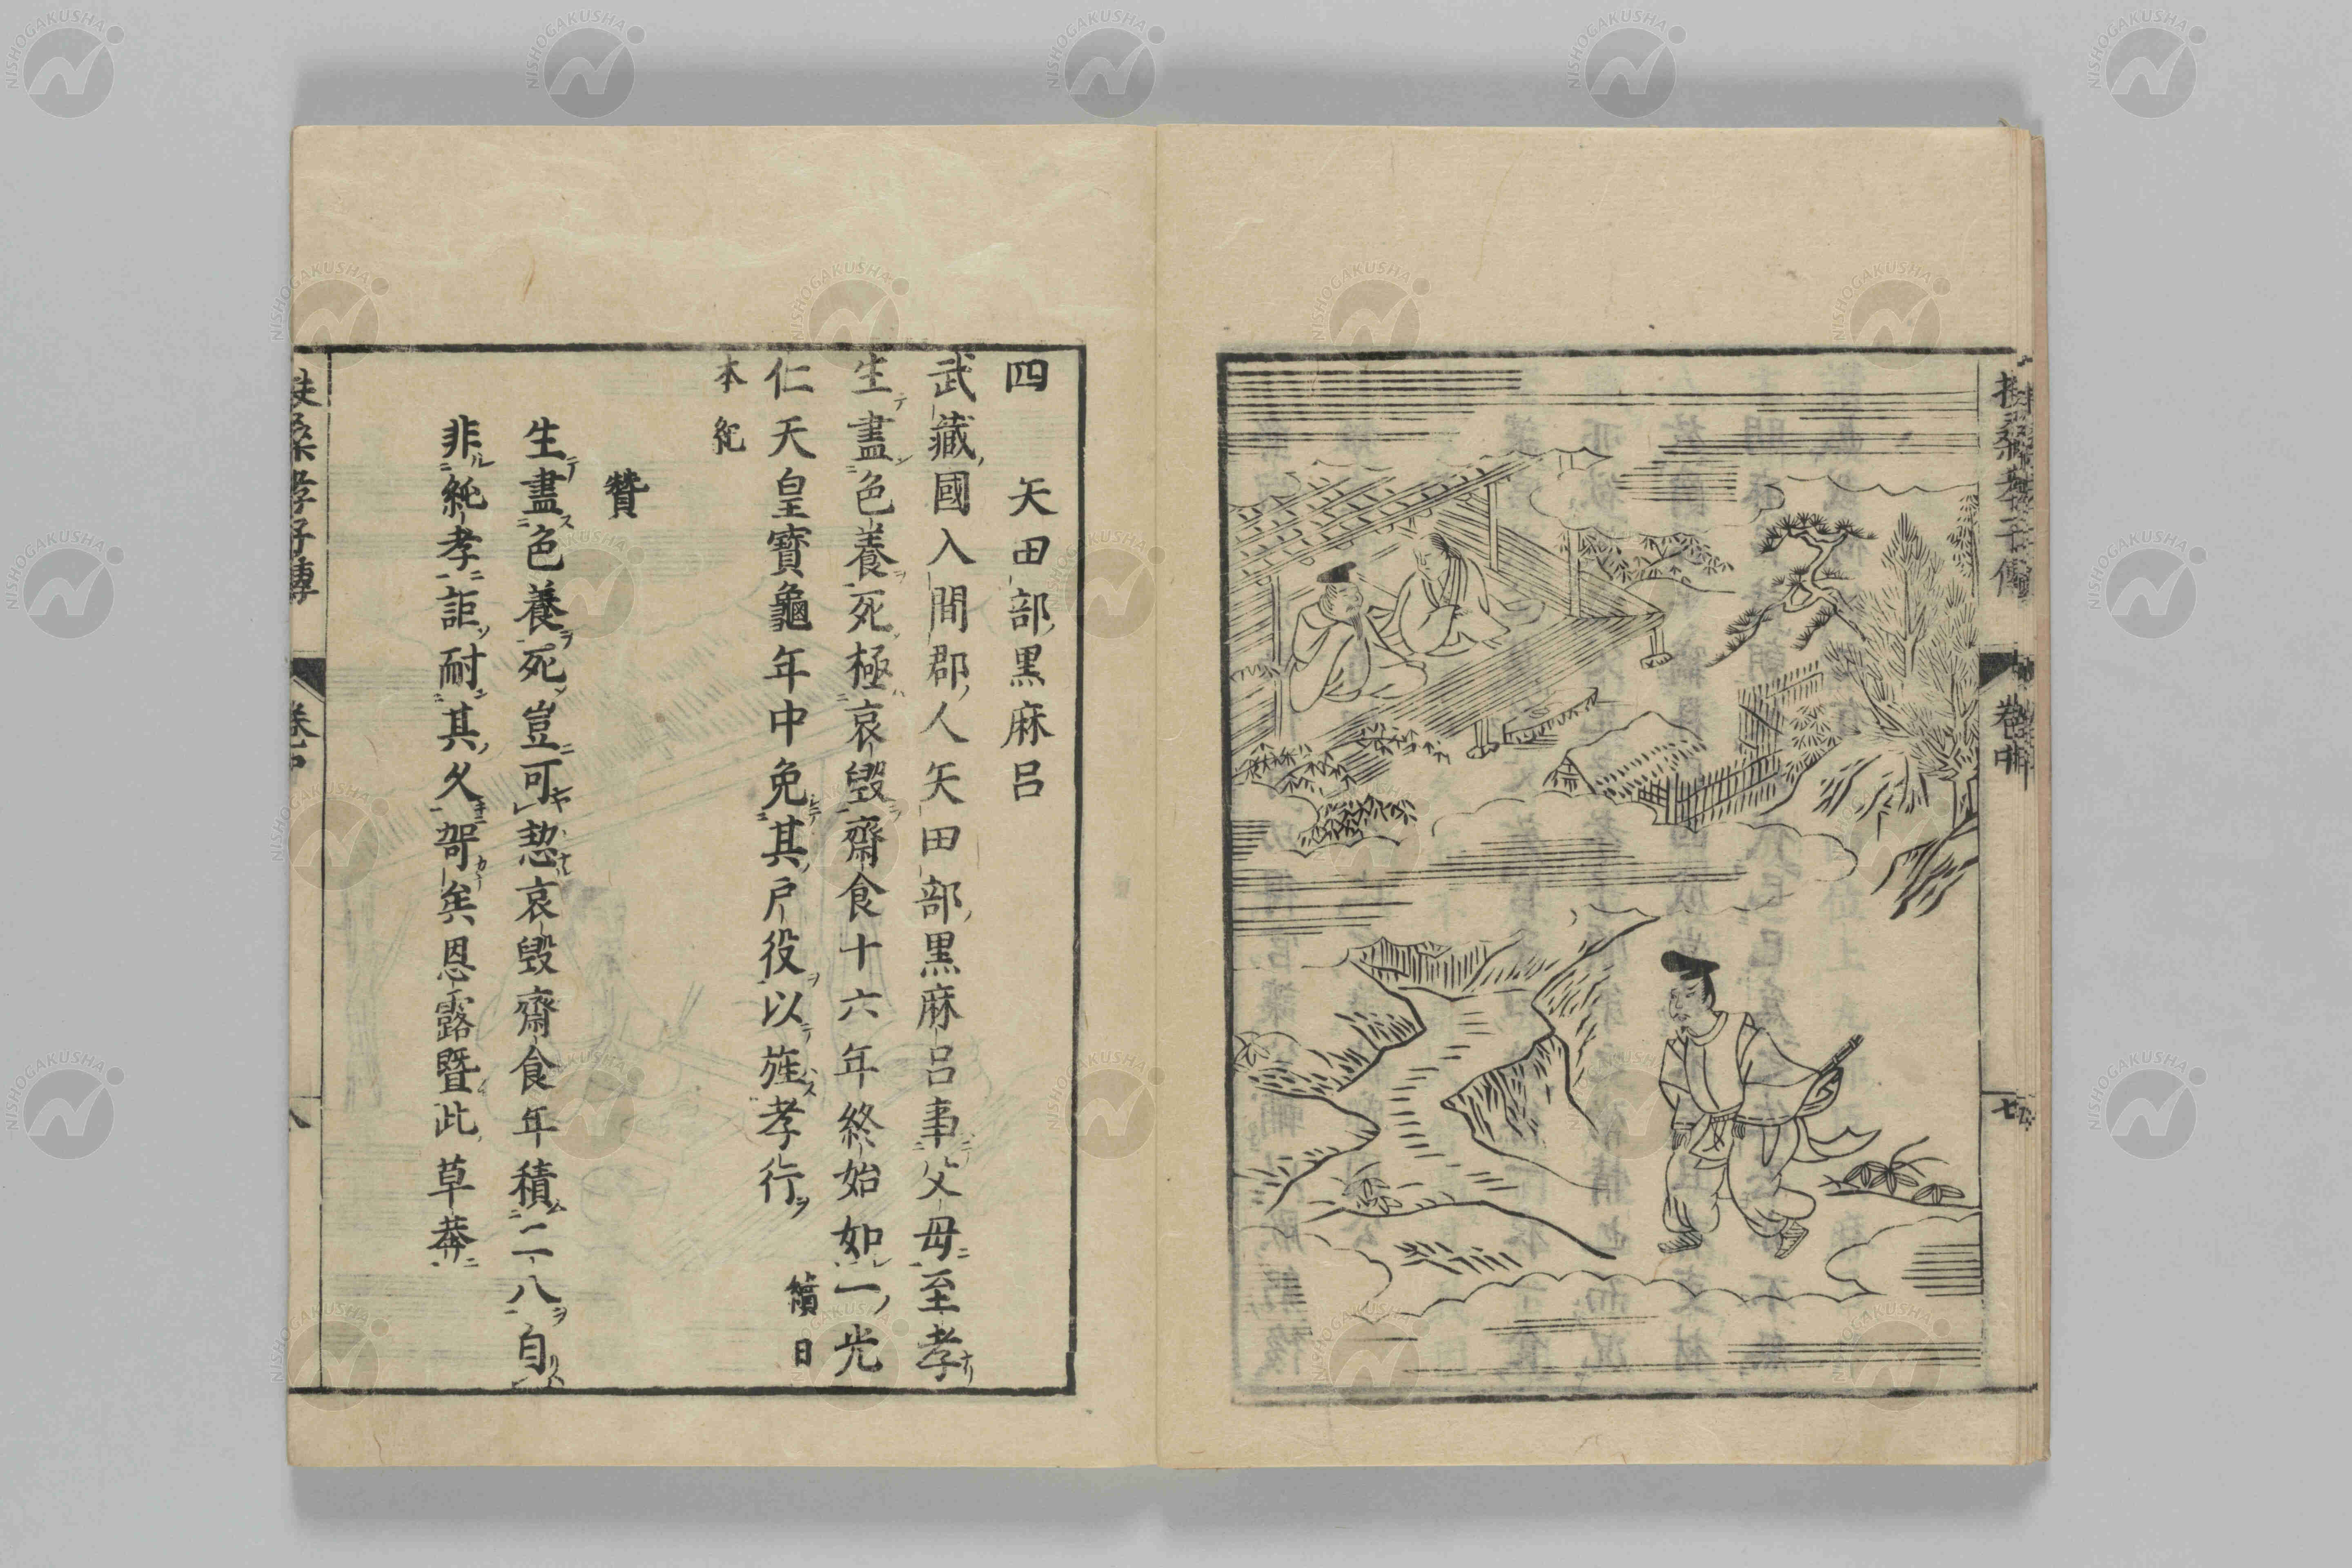 扶桑孝子傳
卷中
七
四　矢田部黒麻呂
武藏國入間郡人矢田部黒麻呂事父母至孝
生盡色養死極哀毀齋食十六年終始如一光
仁天皇寶龜年中免其戸役以旌孝行 續日
本紀
贊
生盡色養死豈可愸哀毀齋食年積二八自
非純孝詎耐其久哿矣恩露曁此草莽
扶桑孝子傳
卷中
八
NISHOGAKUSHA